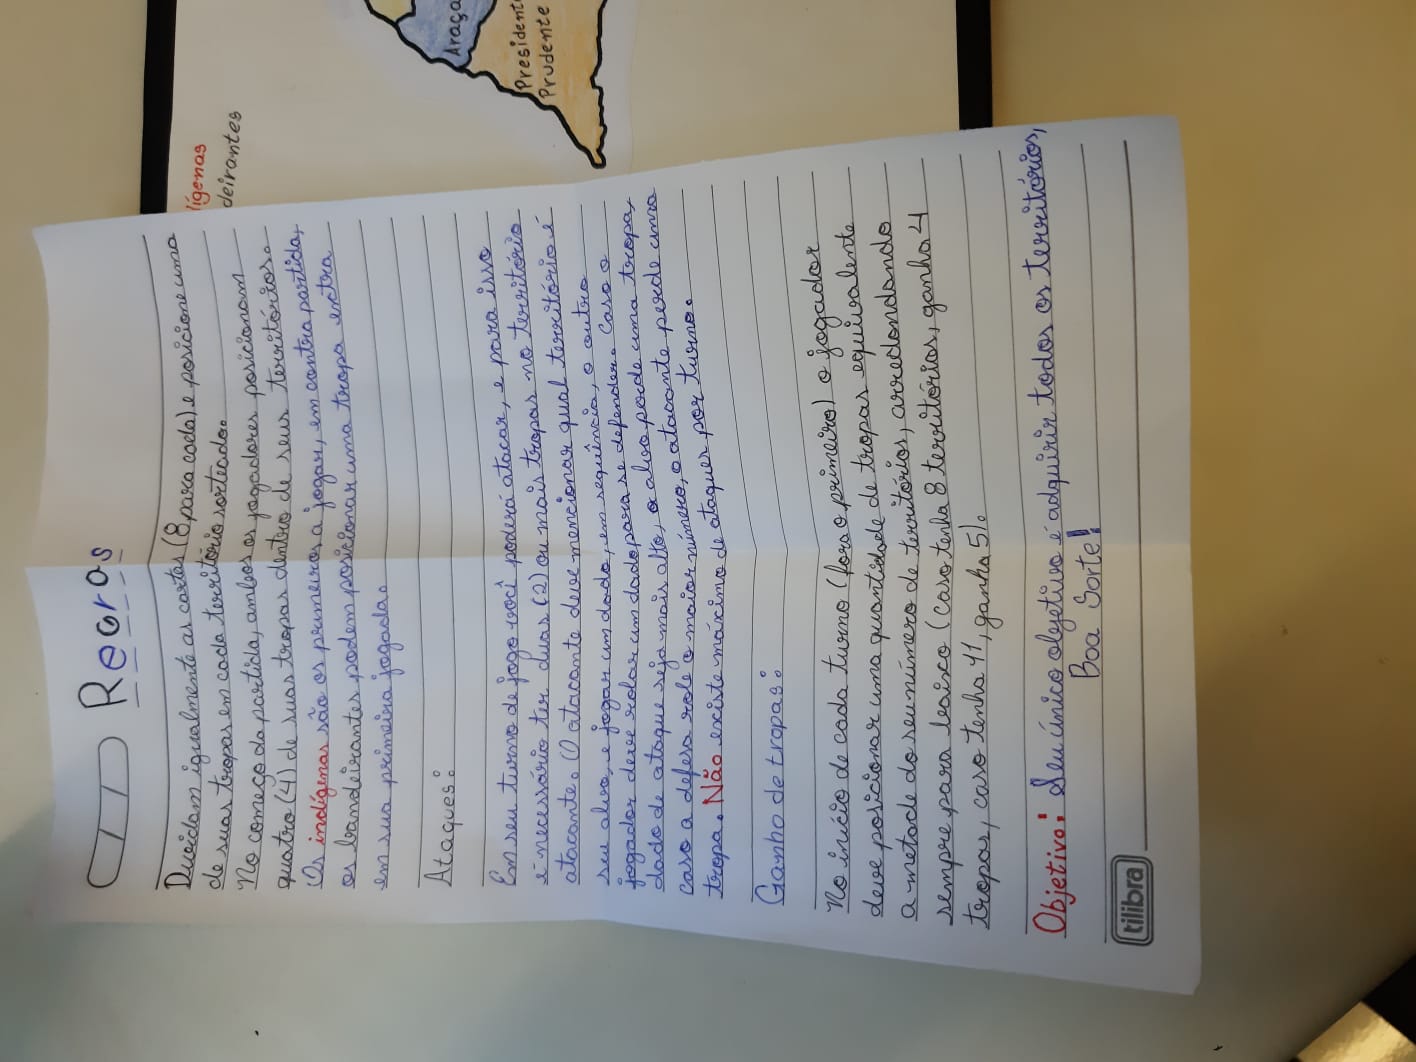 Regras
Dividam igualmente as cartas (8 para cada) e posicione uma
de suas tropas em cada território sorteado.
No começo da partida, ambos os jogadores posicionam
quatro (4) de suas tropas dentro de seus territórios.
Os indígenas são os primeiros a jogar, em contra partida,
os bandeirantes podem posicionar uma tropa extra
em sua primeira jogada.
Ataques:
Em seu turno de jogo você poderá atacar, e para isso
é necessário ter duas (2) ou mais tropas no território
atacante. O atacante deve mencionar qual território é
seu alvo, e jogar um dado, em sequência, o outro
jogador deve rolar um dado para se defender. Caso o
dado de ataque seja mais alto, o alvo perde uma tropa,
caso a defesa role o maior número, o atacante perde uma
tropa. Não existe máximo de ataques por turno.
Ganho de tropas:
No início de cada turno (fora o primeiro) o jogador
deve posicionar uma quantidade de tropas equivalente
a metade do seu número de territórios, arredondando
sempre para baixo (Caso tenha 8 territórios, ganha 4
tropas, caso tenha 11, ganha 5).
Objetivo: Seu único objetivo é adquirir todos os territórios,
Boa Sorte!
tilibra
ígenas
deirantes
Araça
President
Prudente